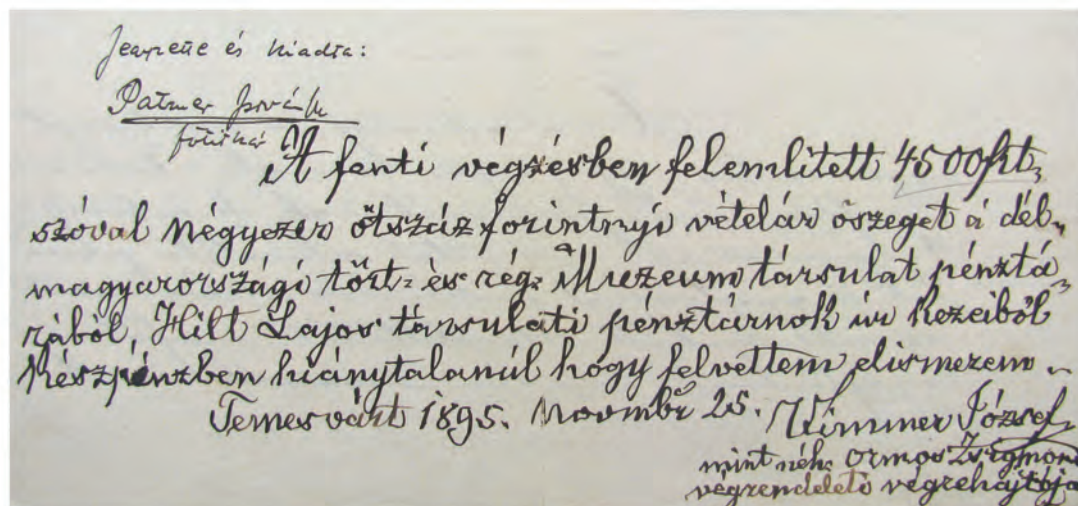 Jegyezte és kiadta:
Patzner István
főtitkár
A fenti végzésben felemlitett 4500 frt,
szóval négyezer ötszáz forintnyi vételár öszeget a dél-
magyarországi tört= és rég= Muzeum társulat pénztá
rából, Hilt Lajos társulati pénztárnok úr kezeiből
készpénzben hiánytalanúl hogy felvettem elismerem.
Temesvárt 1895. Novmbr 25. Wimmer József
mint néh. Ormos Zsigmond
végrendeleti végrehajtója